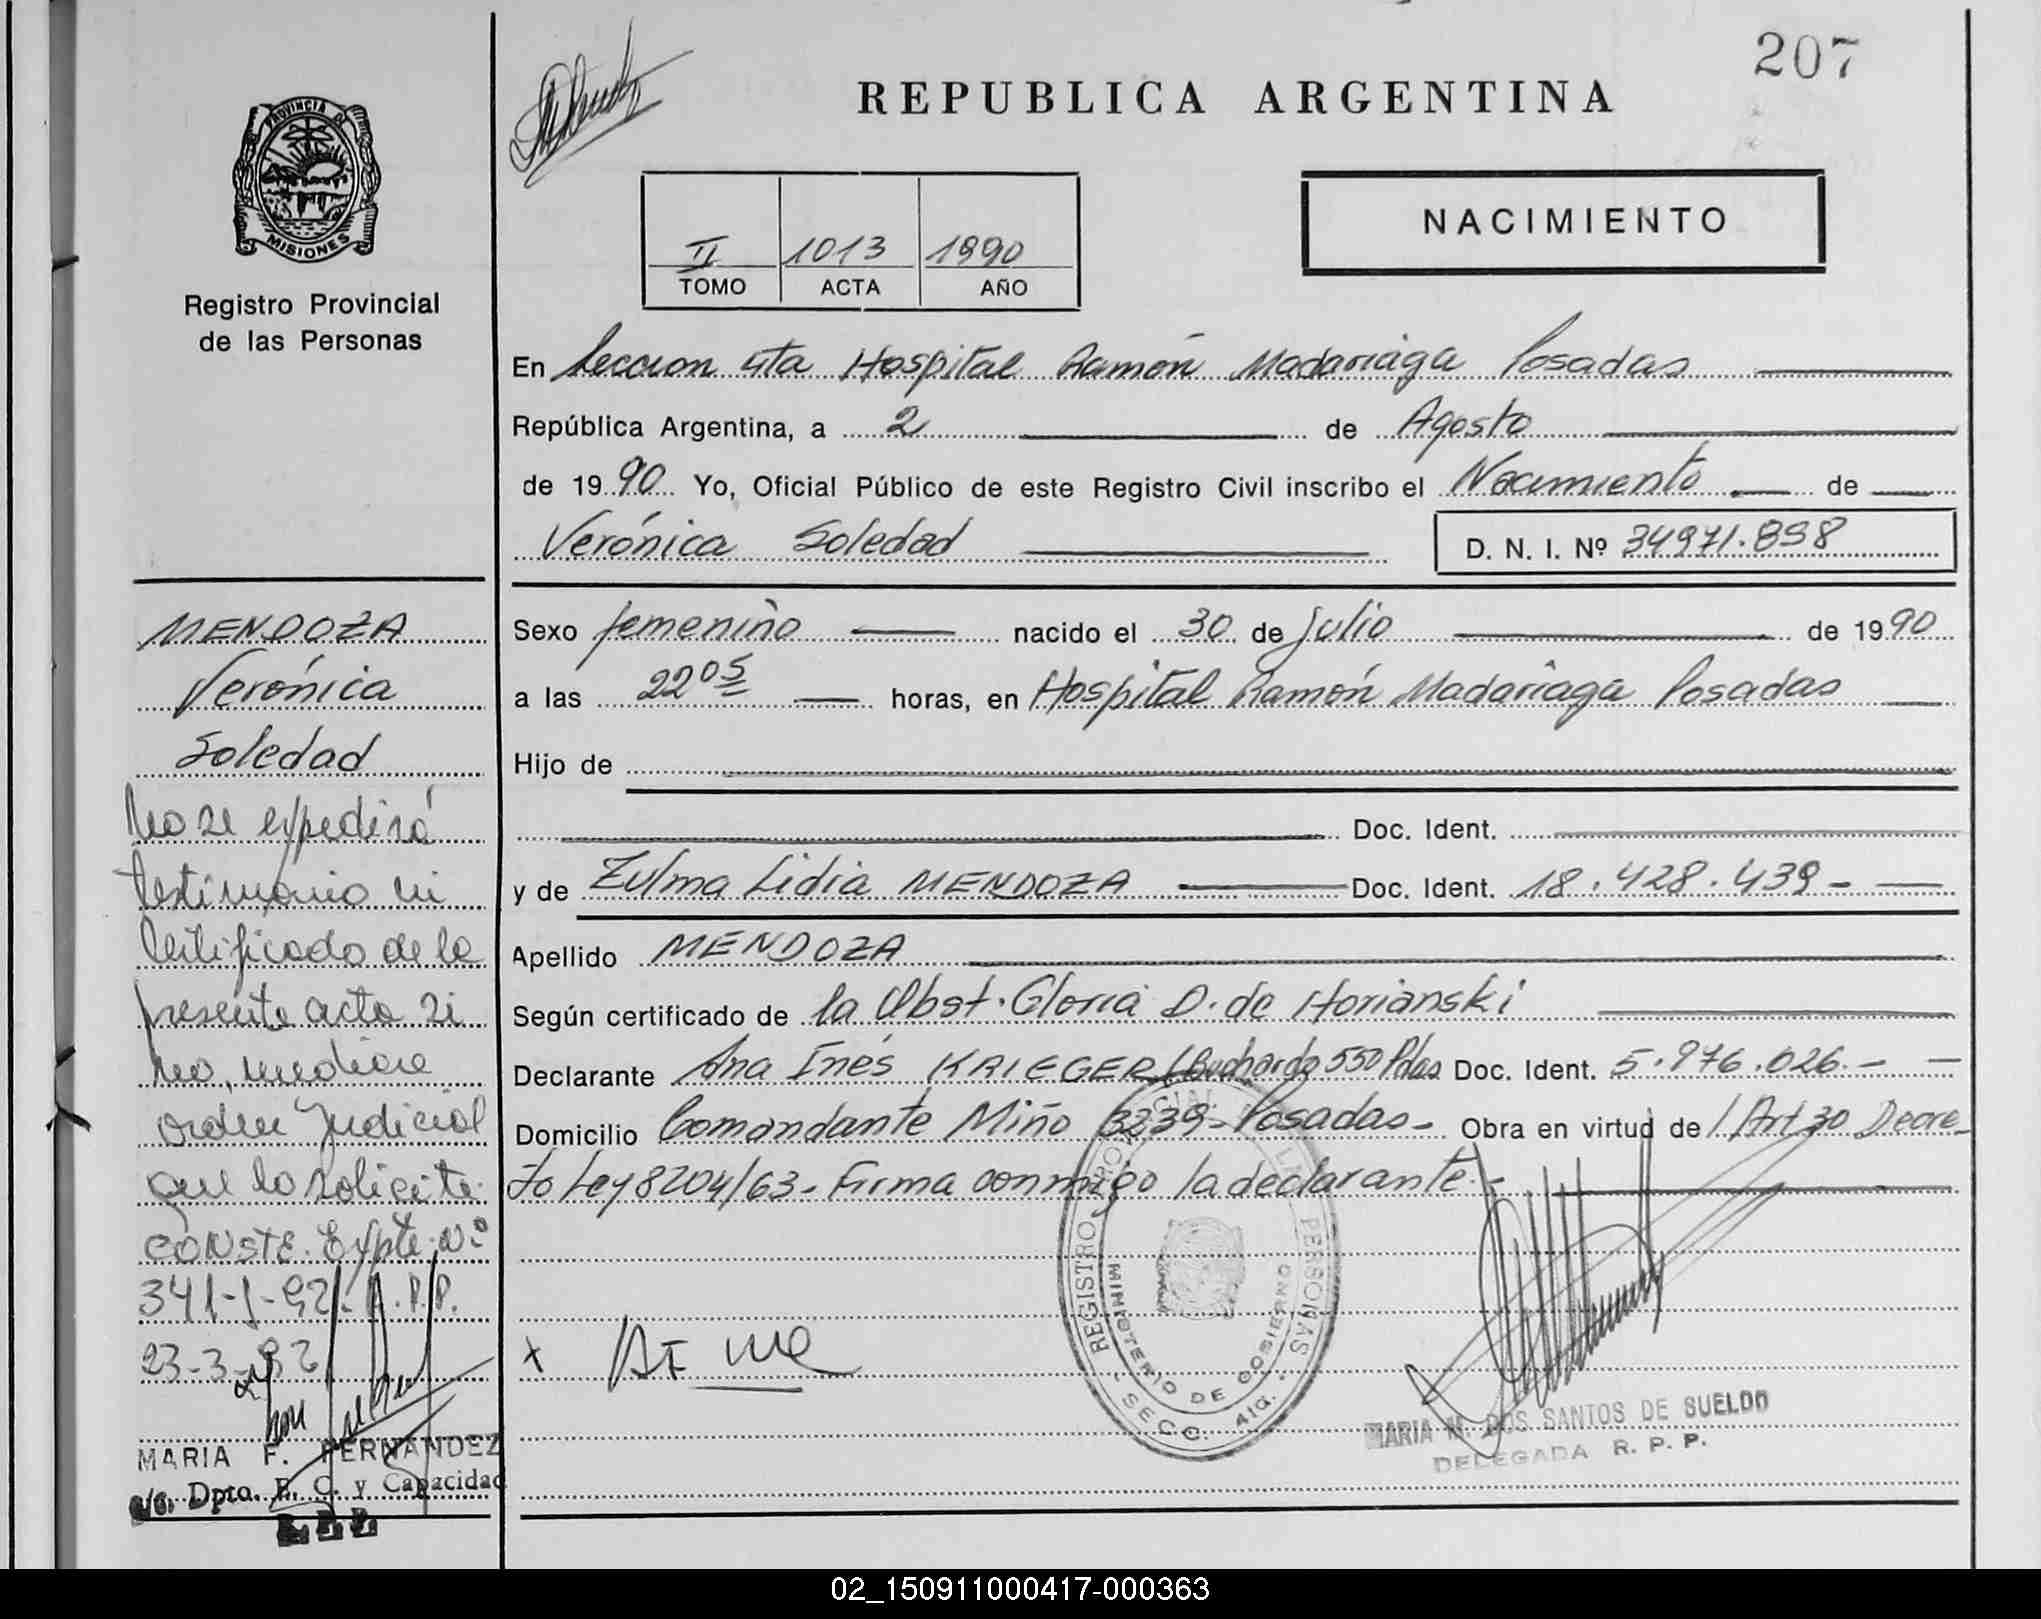 207
REPUBLICA ARGENTINA
PROVINCIA DE
MISIONES
Registro Provincial
de las Personas
NACIMIENTO
II 1013 1990
TOMO ACTA AÑO
En Seccion 4ta Hospital Ramón Madariaga Posadas
República Argentina, a 2 de Agosto
de 1990 Yo, Oficial Público de este Registro Civil inscribo el Nacimiento de
Verónica Soledad D. N. I. Nº 34971.898
Sexo femenino nacido el 30 de Julio de 1990
a las 22 05 horas, en Hospital Ramón Madariaga Posadas
Hijo de
Doc. Ident.
y de Zulma Lidia MENDOZA Doc. Ident. 18.428.439-
Apellido MENDOZA
Según certificado de la Obst. Gloria D. de Horianski
Declarante Ana Inés KRIEGER (Buchardo 550 Pdas Doc. Ident. 5.976.026.-
Domicilio Comandante Miño 3239- Posadas- Obra en virtud de / Art 30 Decre-
to Ley 8204/63- Firma conmigo la declarante.-
x
REGISTRO PROVINCIAL DE LAS PERSONAS
MINISTERIO DE GOBIERNO
- SECC. 4ta. -
MARIA M. DOS SANTOS DE SUELDO
DELEGADA R. P. P.
MENDOZA
Verónica
Soledad
No se expedirá
testimonio ni
Certificado de la
presente acta si
no, mediare
orden Judicial
que lo solicite.
CONSTE. Expte. Nº
341-J-92. R.P.P.
23-3-92
MARIA F. FERNANDEZ
a/c. Dpto. E. C. y Capacidad
R. P. P.
02_150911000417-000363